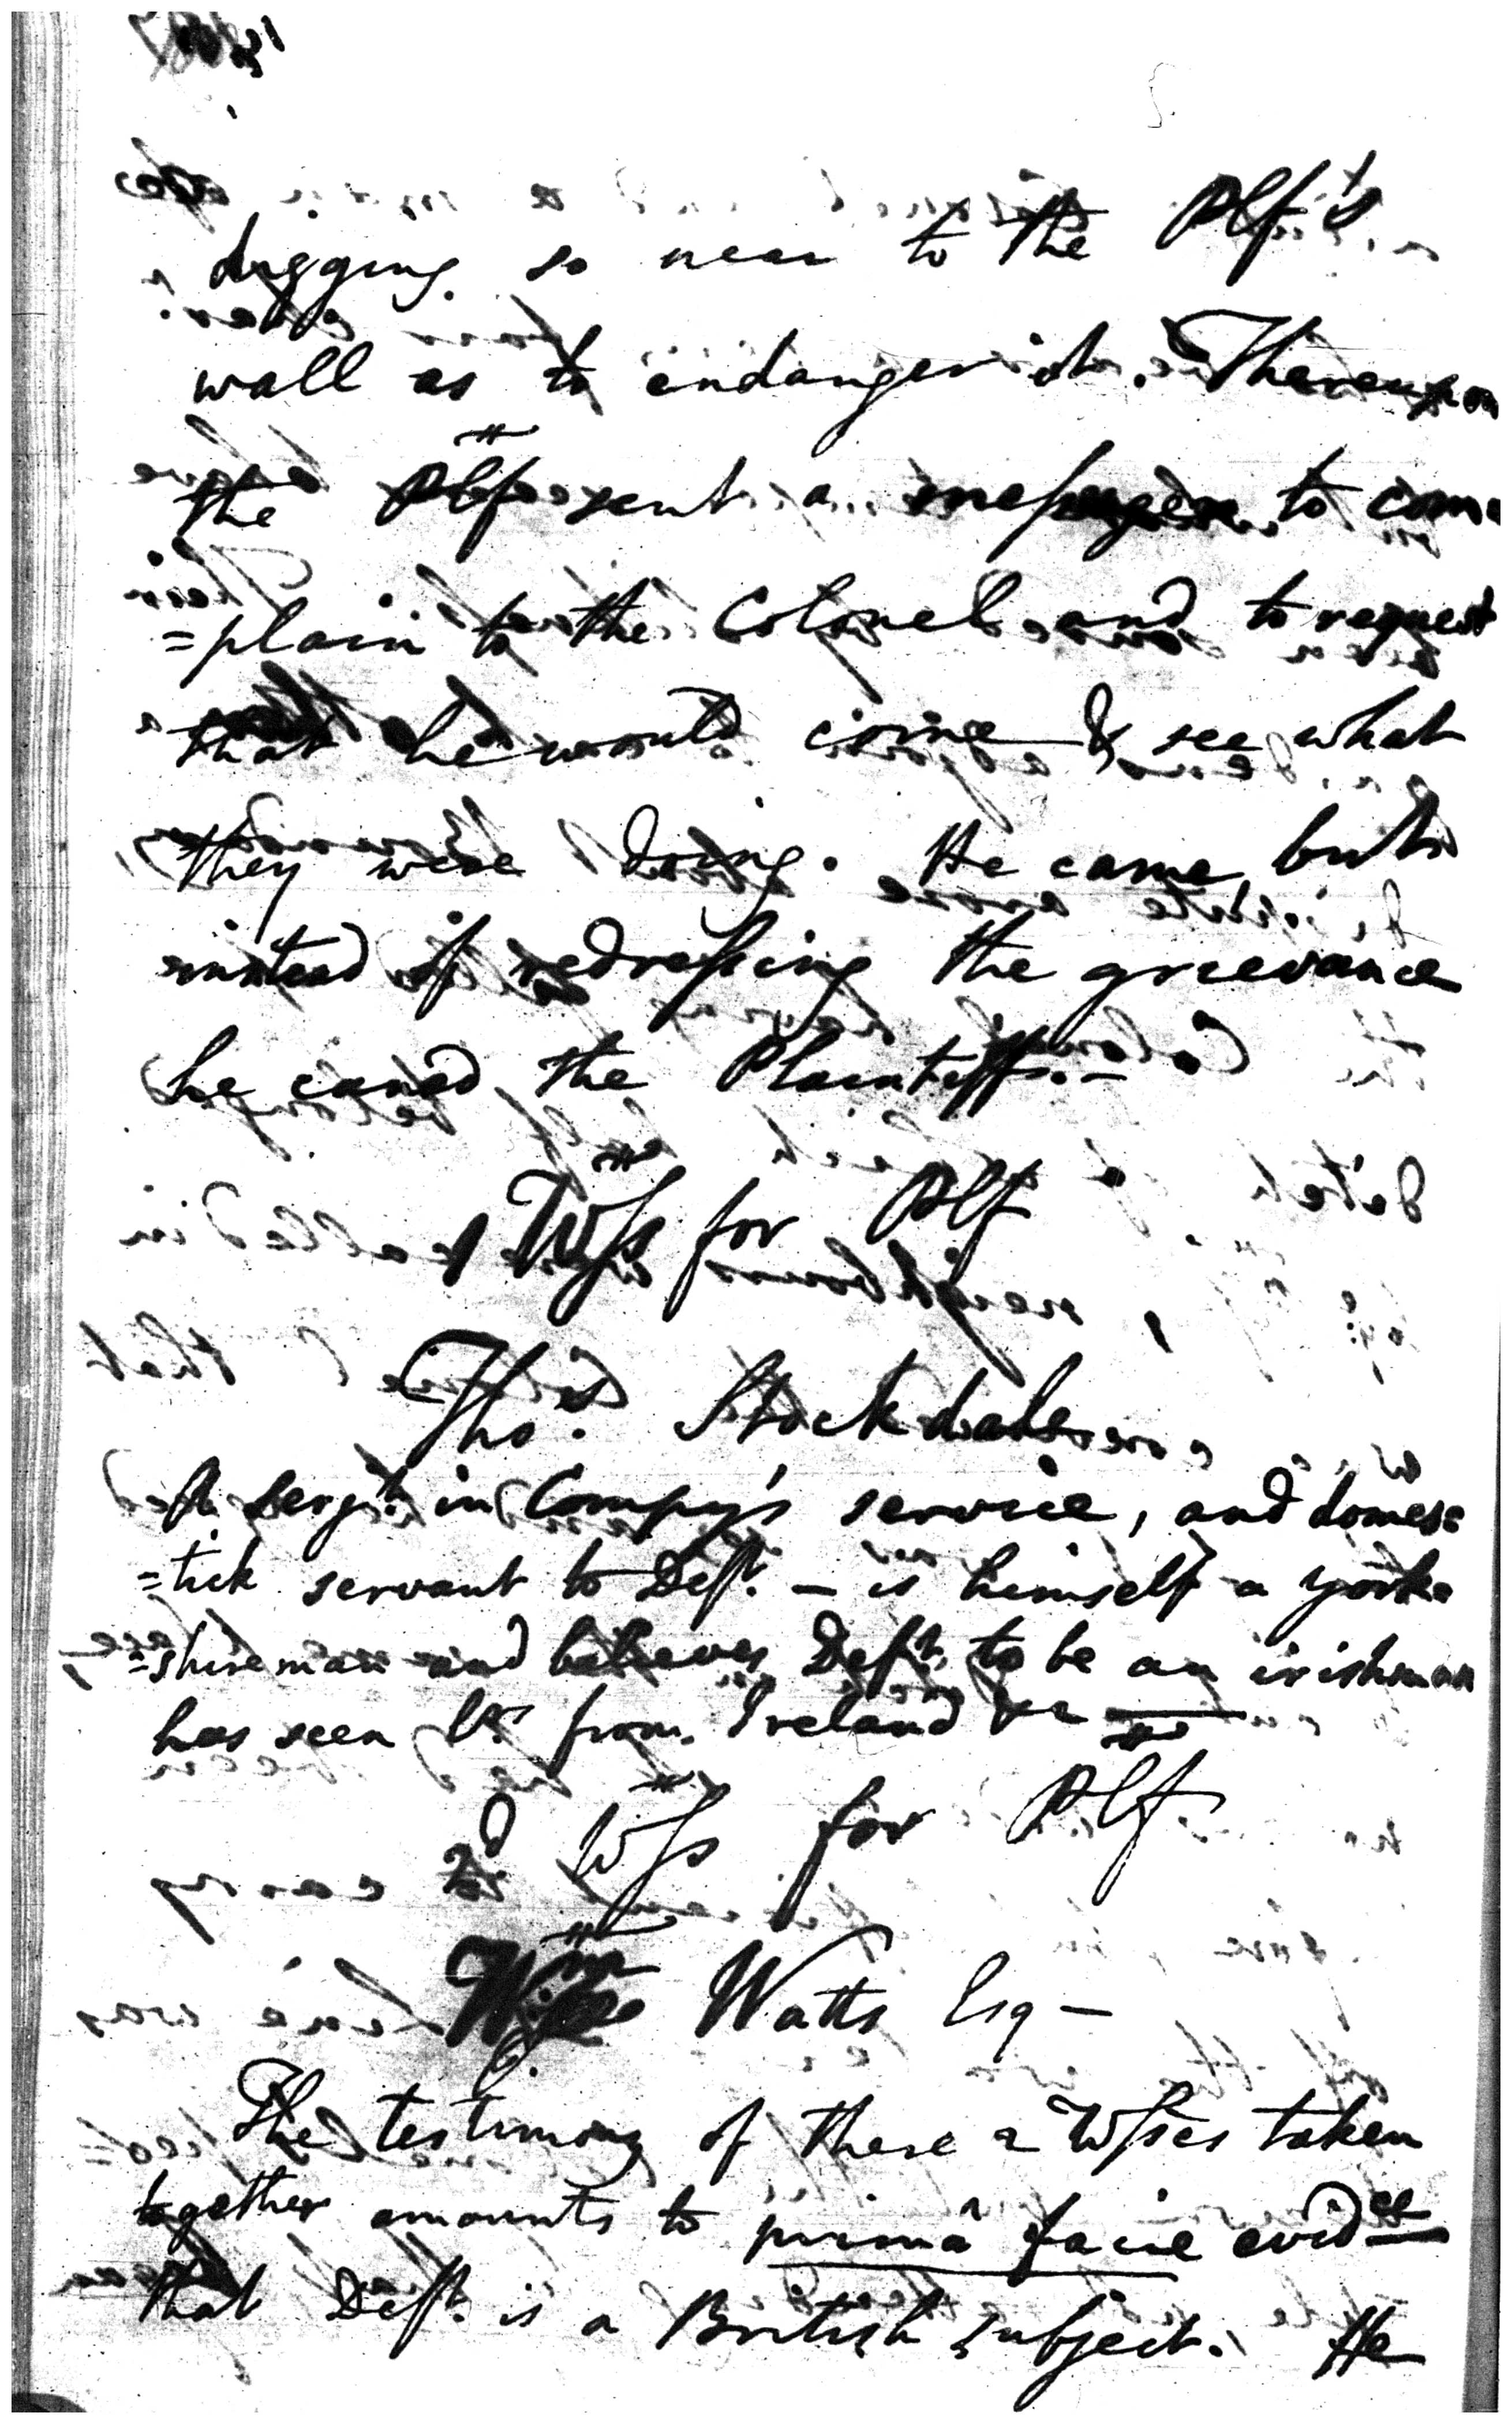 digging so near to the Plf's
wall as to endanger it. Thereupon
the Plf sent a messenger to com=
=plain to the Colonel and to request
that he would come & see what
they were doing. He came, but
instead of redressing the grievance
he caned the Plaintiff. –
Wss for Plf
Thos. Stockdale
A Sergt. in Compy's service, and domes=
=tick servant to Deft. – is himself a york=
=shireman and believes Deft. to be an irishman
has seen lrs from Ireland &c
2d Wss for Plf
Wm Watts Esq –
The testimony of these 2 Wsses taken
together amounts to primâ facie evidce
that Deft. is a British subject. He